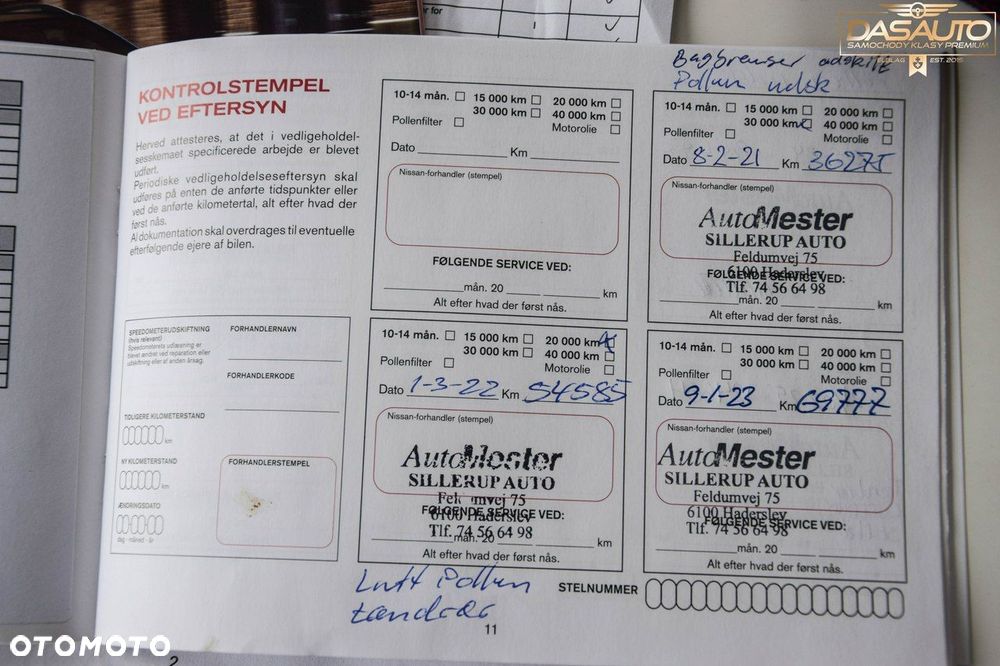 er for
DASAUTO
SAMOCHODY KLASY PREMIUM
ELBLĄG EST. 2015
KONTROLSTEMPEL
VED EFTERSYN
Herved attesteres, at det i vedligeholdel-
sesskemaet specificerede arbejde er blevet
udført.
Periodiske vedligeholdelseseftersyn skal
udføres på enten de anførte tidspunkter eller
ved de anførte kilometertal, alt efter hvad der
først nås.
Al dokumentation skal overdrages til eventuelle
efterfølgende ejere af bilen.
10-14 mån. 15 000 km 20 000 km
30 000 km 40 000 km
Pollenfilter Motorolie
Dato Km
Nissan-forhandler (stempel)
FØLGENDE SERVICE VED:
mån. 20 km
Alt efter hvad der først nås.
Bagbremser adskilt
Pollen udsk
10-14 mån. 15 000 km 20 000 km
30 000 km 40 000 km
Pollenfilter Motorolie
Dato 8-2-21 Km 36275
Nissan-forhandler (stempel)
AutoMester
SILLERUP AUTO
Feldumvej 75
6100 Haderslev
FØLGENDE SERVICE VED:
Tlf. 74 56 64 98
mån. 20 km
Alt efter hvad der først nås.
SPEEDOMETERUDSKIFTNING
(hvis relevant)
Speedometerets udlæsning er
blevet ændret ved reparation eller
udskiftning af anden årsag.
FORHANDLERNAVN
FORHANDLERKODE
TIDLIGERE KILOMETERSTAND
km
NY KILOMETERSTAND
km
ÆNDRINGSDATO
dag - måned - år
FORHANDLERSTEMPEL
10-14 mån. 15 000 km 20 000 km
30 000 km 40 000 km
Pollenfilter Motorolie
Dato 1-3-22 Km 54585
Nissan-forhandler (stempel)
AutoMester
SILLERUP AUTO
Feldumvej 75
6100 Haderslev
FØLGENDE SERVICE VED:
Tlf. 74 56 64 98
mån. 20 km
Alt efter hvad der først nås.
Luft Pollen
tændrør
10-14 mån. 15 000 km 20 000 km
30 000 km 40 000 km
Pollenfilter Motorolie
Dato 9-1-23 Km 69777
Nissan-forhandler (stempel)
AutoMester
SILLERUP AUTO
Feldumvej 75
6100 Haderslev
FØLGENDE SERVICE VED:
Tlf. 74 56 64 98
mån. 20 km
Alt efter hvad der først nås.
STELNUMMER
11
OTOMOTO
2